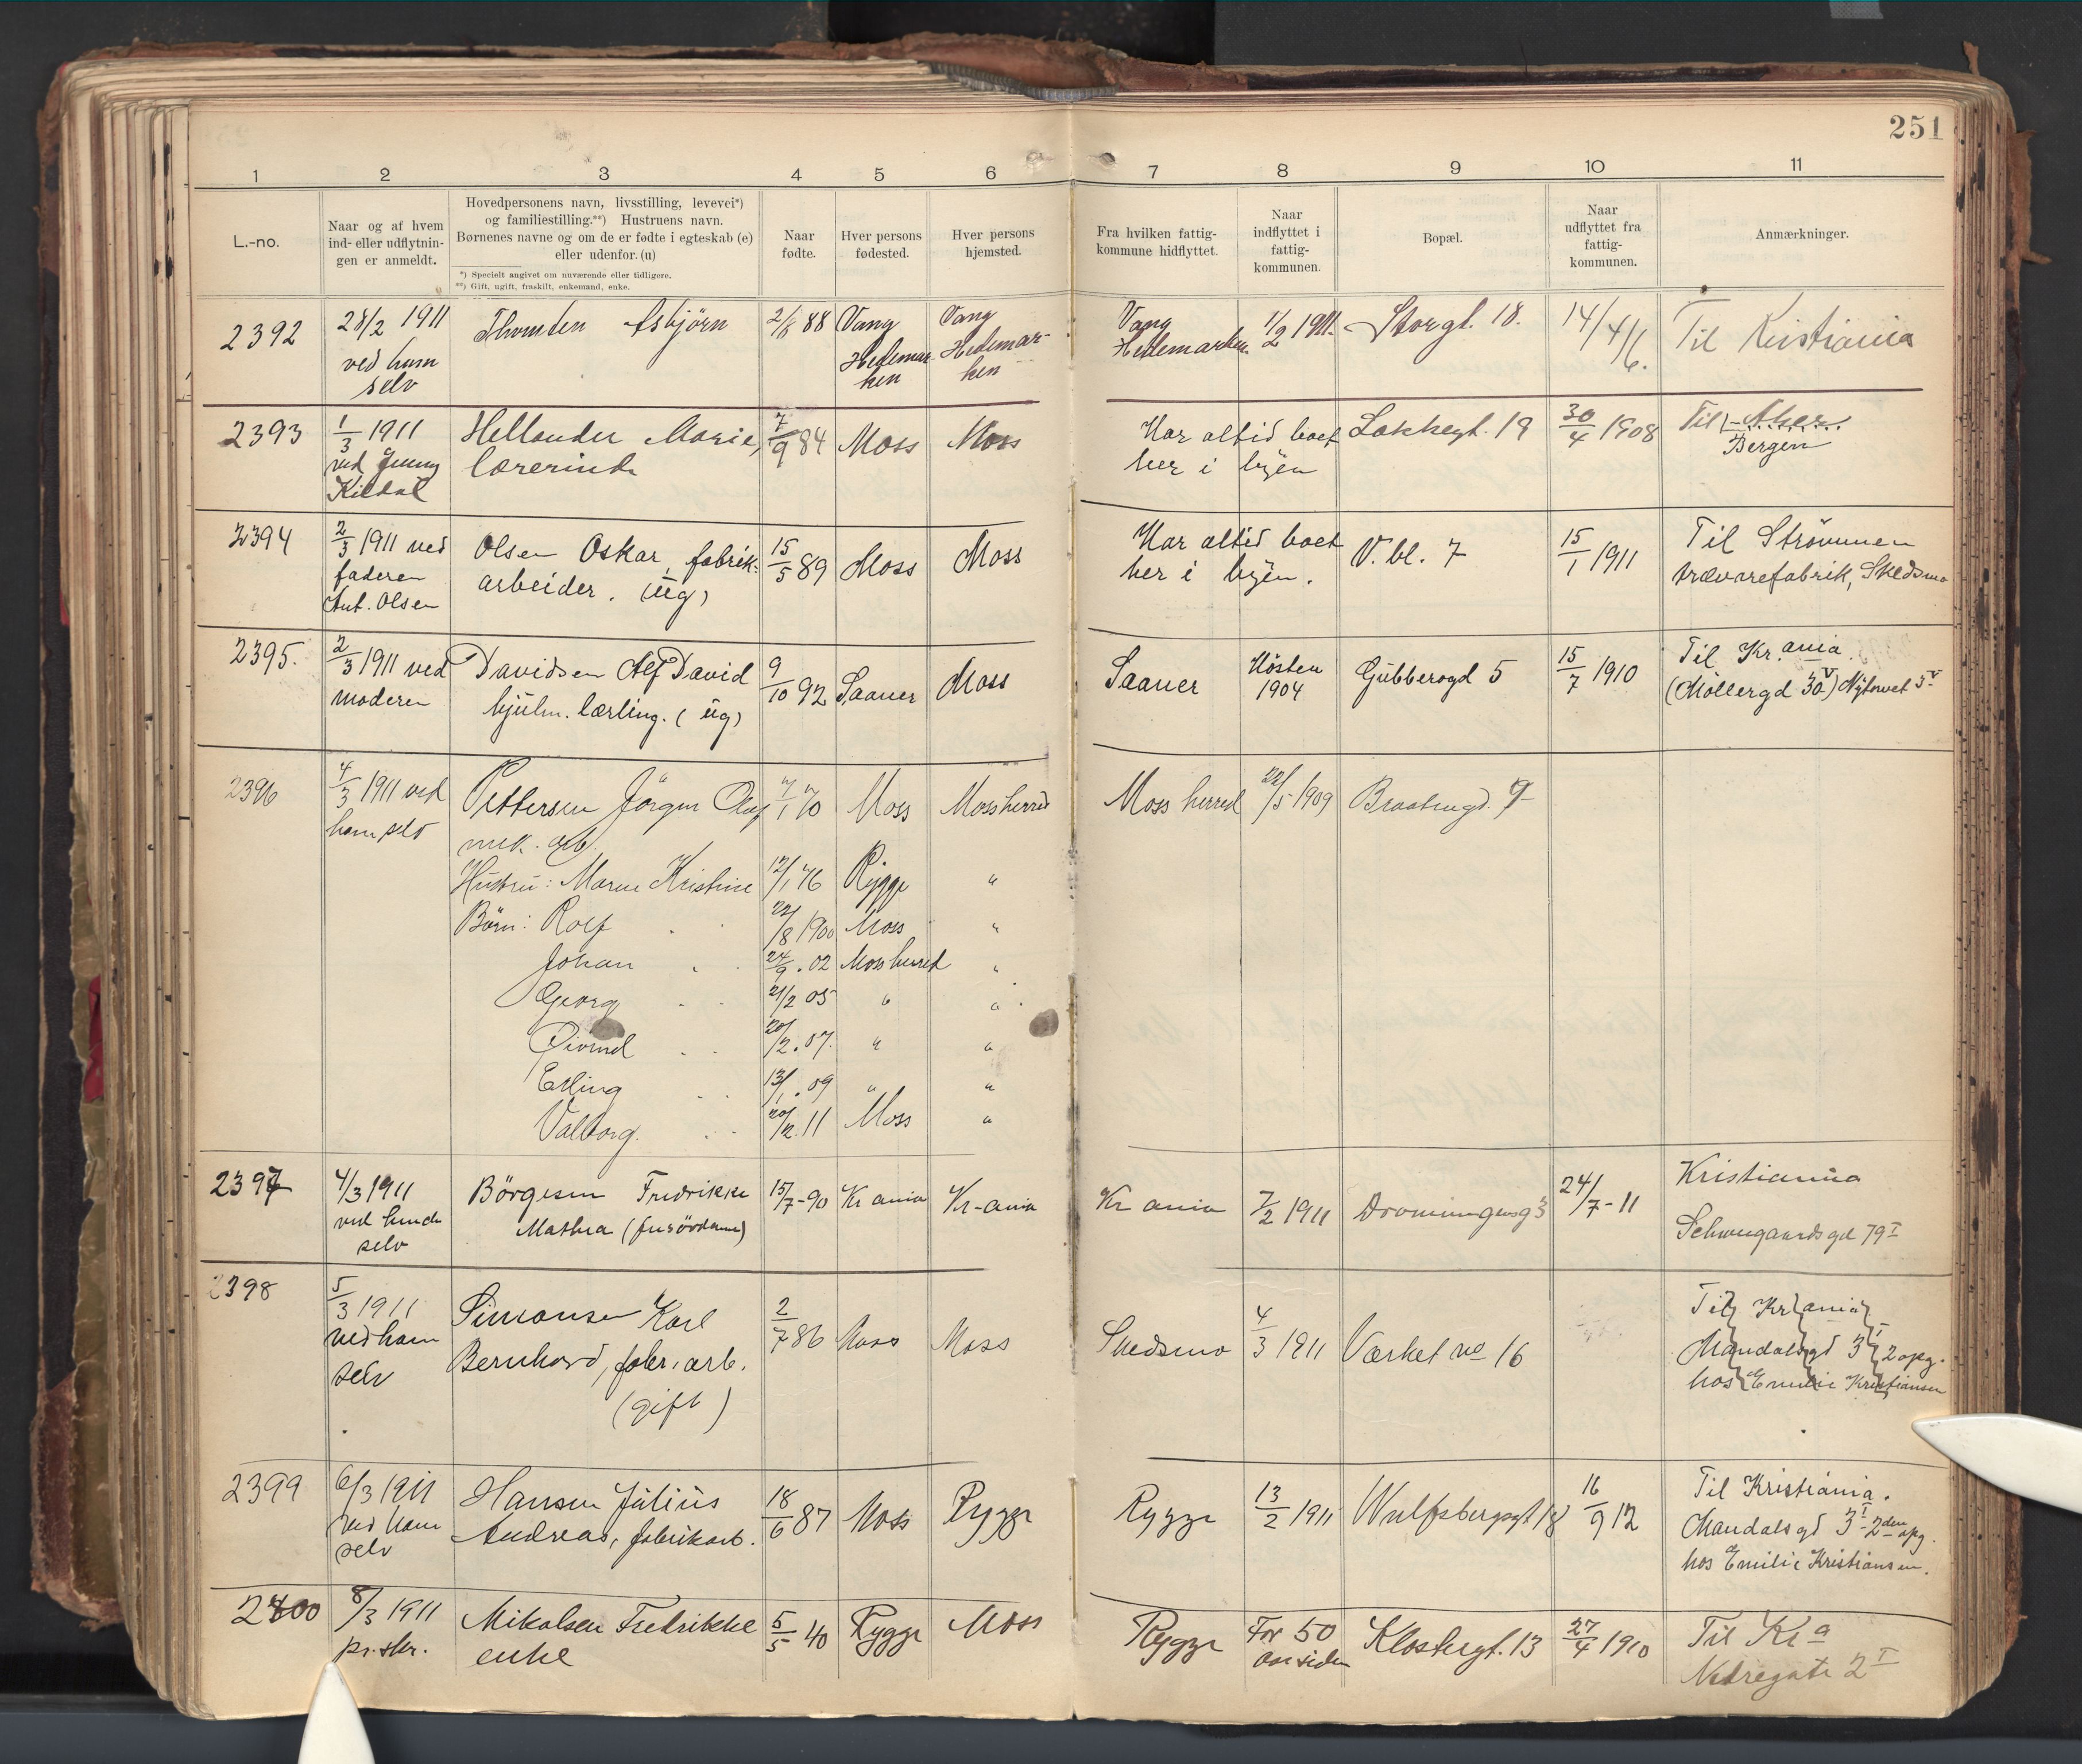 251
1 2 3 4 5 6 7 8 9 10 11
L.-no.
Naar og af hvem
ind- eller udflytnin-
gen er anmeldt.
Hovedpersonens navn, livsstilling, levevei*)
og familiestilling.**) Hustruens navn.
Børnenes navne og om de er fødte i egteskab (e)
eller udenfor. (u)
*) Specielt angivet om nuværende eller tidligere.
**) Gift, ugift, fraskilt, enkemand, enke.
Naar
fødte.
Hver persons
fødested.
Hver persons
hjemsted.
Fra hvilken fattig-
kommune hidflyttet.
Naar
indflyttet i
fattig-
kommunen.
Bopæl.
Naar
udflyttet fra
fattig-
kommunen.
Anmærkninger.
2392
28/2 1911
ved ham
selv
Asbjörn
2/8 88
Vang
Hedemar
ken
Vang
Hedemar-
ken
Vang
Hedemarken
1/2 1911.
Storgt. 18.
14/4/6.
Til Kristiania
2393
1/3 1911
ved Jenny
Kildal
Hellander Marie,
lærerinde
7/9 84
Moss
Moss
Har altid boet
her i byen
Lakkegt. 19
30/4 1908
Til Aker
Bergen
2394
2/3 1911 ved
faderen
Ant. Olsen
Olsen Oskar, fabrik-
arbeider. (ug)
15/5 89
Moss
Moss
Har altid boet
her i byen.
V. bl. 7
15/1 1911
Til Strömmen
trævarefabrik, Skedsmo
2395.
2/3 1911 ved
moderen
Davidsen Alf David
hjulm. lærling. (ug)
9/10 92
Saaner
Moss
Saaner
Hösten
1904
Gubberogd 5
15/7 1910
Til Kr.ania.
(Möllergd 30 V) Nytorvet 5 V
2396
4/3 1911 ved
ham selv
Pettersen Jörgen Olaf
mek. arb.
7/1 70
Moss
Moss herred
Moss herred
22/5 1909
Braatengd. 9
Hustru: Maren Kristine
12/1 76
Rygge
"
Börn: Rolf
22/8 1900
Moss
"
Johan
24/9. 02
Moss herred
"
Georg
21/2 05
"
"
Öivind
20/2. 07.
"
"
Erling
13/1. 09
"
"
Valborg.
20/2. 11
Moss
"
2397
4/3 1911
ved hende
selv
Börgesen Fredrikke
Mathea (frisördame)
15/7-90
Kr ania
Kr-ania
Kr ania
7/2 1911
Dronningensg 3
24/7-11
Kristiania
Schweigaardsgd 79 I
2398
5/3 1911
ved ham
selv
Simonsen Karl
Bernhard, fabr. arb.
(gift)
2/7 86
Moss
Moss
Skedsmo
4/3 1911
Værket no 16
Til Kr ania
Mandalsgd 3 I 2 opg.
hos Emilie Kristiansen
2399
6/3 1911
ved ham
selv
Hansen Julius
Andreas, fabrikarb.
18/6 87
Moss
Rygge
Rygge
13/2 1911
Wulfsbergsgt 18
16/9 12
Til Kristiania.
Mandalsgd 3 I 2den opg.
hos Emilie Kristiansen.
2400
8/3 1911
pr. skr.
Mikalsen Fredrikke
enke
5/5 40
Rygge
Moss
Rygge
For 50
aar siden
Klostergt. 13
27/4 1910
Til Kr a
Nedregate 2 I